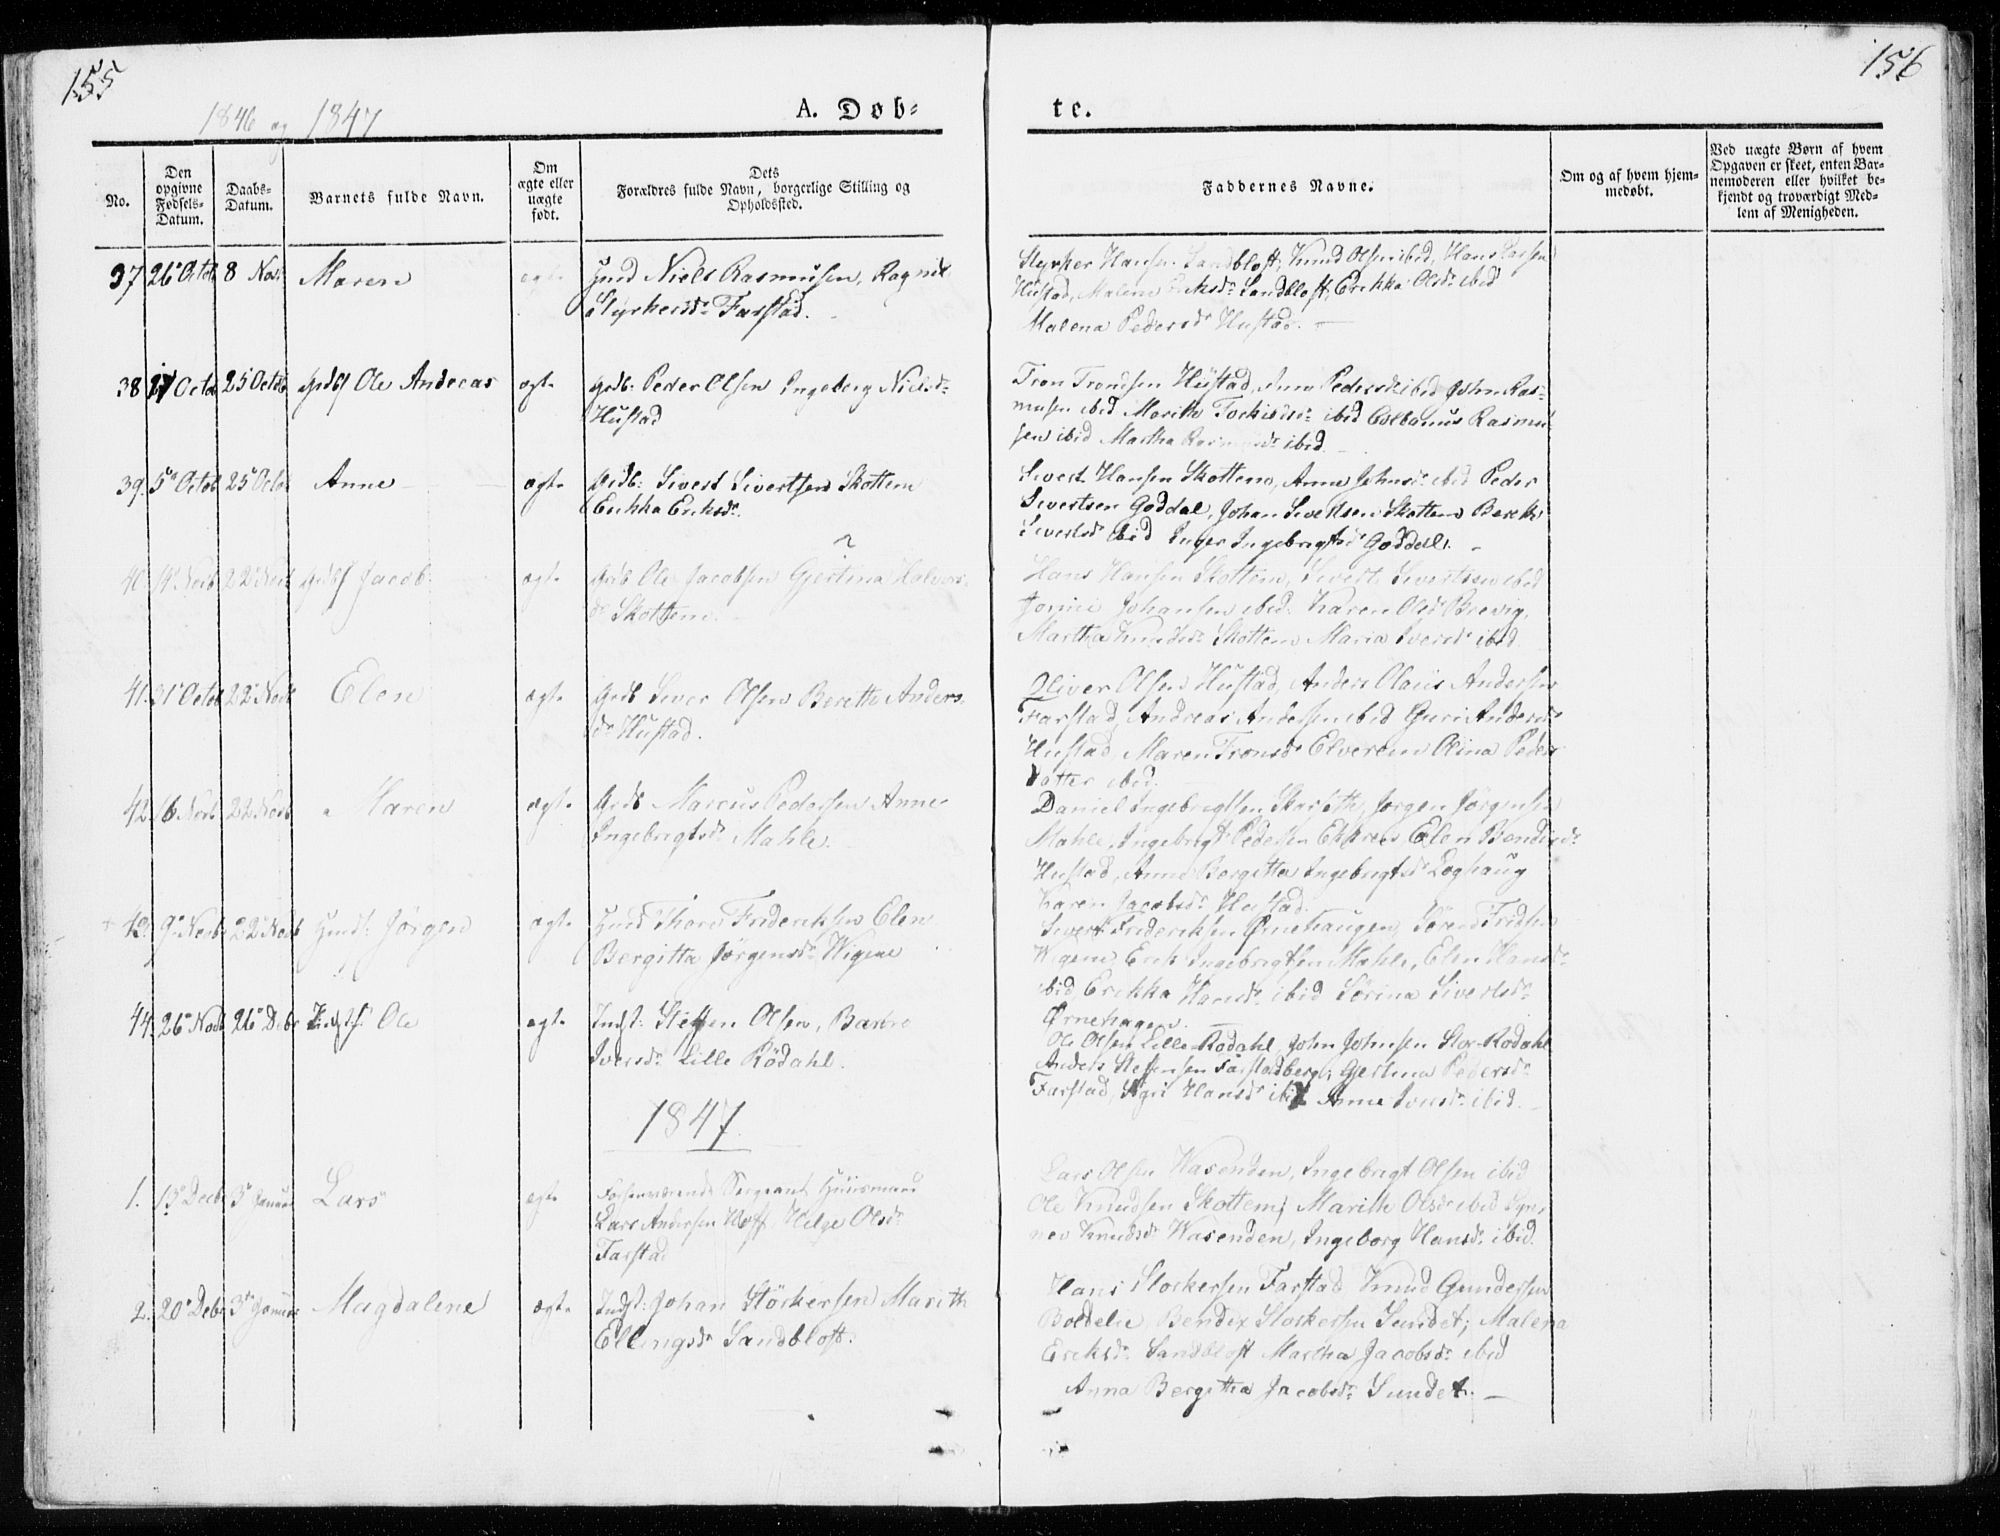 155
156
1846 og 1847
A. Døb-
te.
No.
Den opgivne Fødsels-Datum.
Daabs-Datum.
Barnets fulde Navn.
Om ægte eller uægte født.
Dets
Forældres fulde Navn, borgerlige Stilling og
Opholdssted.
Faddernes Navne.
Om og af hvem hjem-
medøbt.
Ved uægte Børn af hvem
Opgaven er skeet, enten Bar-
nemoderen eller hvilket be-
kjendt og troværdigt Med-
lem af Menigheden.
37 26de Octob 8 Nov Maren ægte Huusmd Niels Rasmussen, Ragnil
Styrkersdr Farstad.
Styrker Hansen Sandbloft, Knud Olsen ibid, Hans Larsen
Hustad, Malena Eriksdr Sandbloft, Erikka Olsdr ibid
Malena Pedersdr Hustad. —
38 Octob 25 Octob Ole Andreas ægte Grdb: Peder Olsen Ingeborg Nielsdr
Hustad
Tron Tronsen Hustad, Anne Pedersdr ibid John Ras-
musen ibid Marith Torkildsdr ibid Rasmu-
sen ibid Martha Rasmusdr ibid
39. 5te Octob 25 Octob Anne ægte Grdb: Sivert Sivertsen Skottem
Erikka Eriksdr
Sivert Hansen Skottem, Anne Johnsdr ibid Peder
Sivertsen Goddal, Johan Sivertsen Skottem Berethe
Sivertsdr ibid Inger Ingebrigtsdr Goddal. -
40. 14de Novb 22de Novb Jacob ægte Grdb Ole Jacobsen Gjertina Halvors-
dr Skottem.
Hans Hansen Skottem, Sivert Sivertsen ibid
Johansen ibid. Karen Olsdr Brevig,
Martha Knudsdr Skottem Maria Iversdr ibid
41. 21de Octob 22de Novb Elen ægte Grdb Siver Olsen Berethe Anders-
dr Hustad.
Oliver Olsen Hustad, Anders Olaus Andersen
Farstad, Andreas Andersen ibid Guri Andersdr
Hustad, Maren Tronsdr Elverom Olina Peders
datter ibid.
42. 16 Novb 22 Novb Maren ægte Grdb Marcus Pedersen Anne
Ingebrigtsdr Mahle.
Daniel Ingebrigtsen, Jørgen Jørgensen
Mahle, Ingebrigt Pedersen Ekkren Elen Bendixdr
Hustad, Anne Bergitta Ingebrigtsdr Loghaug
Karen Jacobsdr Hustad.
+ 42. 9de Novb 22de Novb Jørgen ægte Huusmd Thore Frideriksen Elen
Bergitta Jørgensdr Wigene
Sivert Frideriksen Ørnehaugen, Søren Fridriks
Wigene Erik Ingebrigtsen Mahle, Elen Hansdr
ibid Erikka Hansdr ibid Sørina Sivertsdr
Ørnehagen.
44. 26de Novb 26de Decbr Ole ægte Indst: Steffen Olsen, Barbro
Iversdr Lille Rødahl.
Ole Olsen Lille Rødahl, John Johnsen Stor-Rødahl
Anders Steffensen Farstadberg, Gjertina Pedersdr
Farstad, Sigri Hansdr ibid Anne Iversdr ibid.
1847
1. 13de Decbr 3de Januar Lars ægte Forhenværende Sergeant Huusmand
Lars Andersen Hoff, Helge Olsdr
Farstad
Lars Olsen Wasenden, Ingebrigt Olsen ibid
Ole Knudsen Skottem, Marith Olsdr ibid Syn-
nev Knudsdr Wasenden, Ingeborg Hansdr ibid.
2. 20de Decbr 3die Januar Magdalene ægte Indst: Johan Størkersen Marith
Ellingsdr Sandbloft.
Hans Storkersen Farstad Knud Gundersen
Boldelie, Bendix Storkersen Sundet, Malena
Eriksdr Sandbloft Martha Jacobsdr ibid
Anna Bergitha Jacobsdr Sundet. —